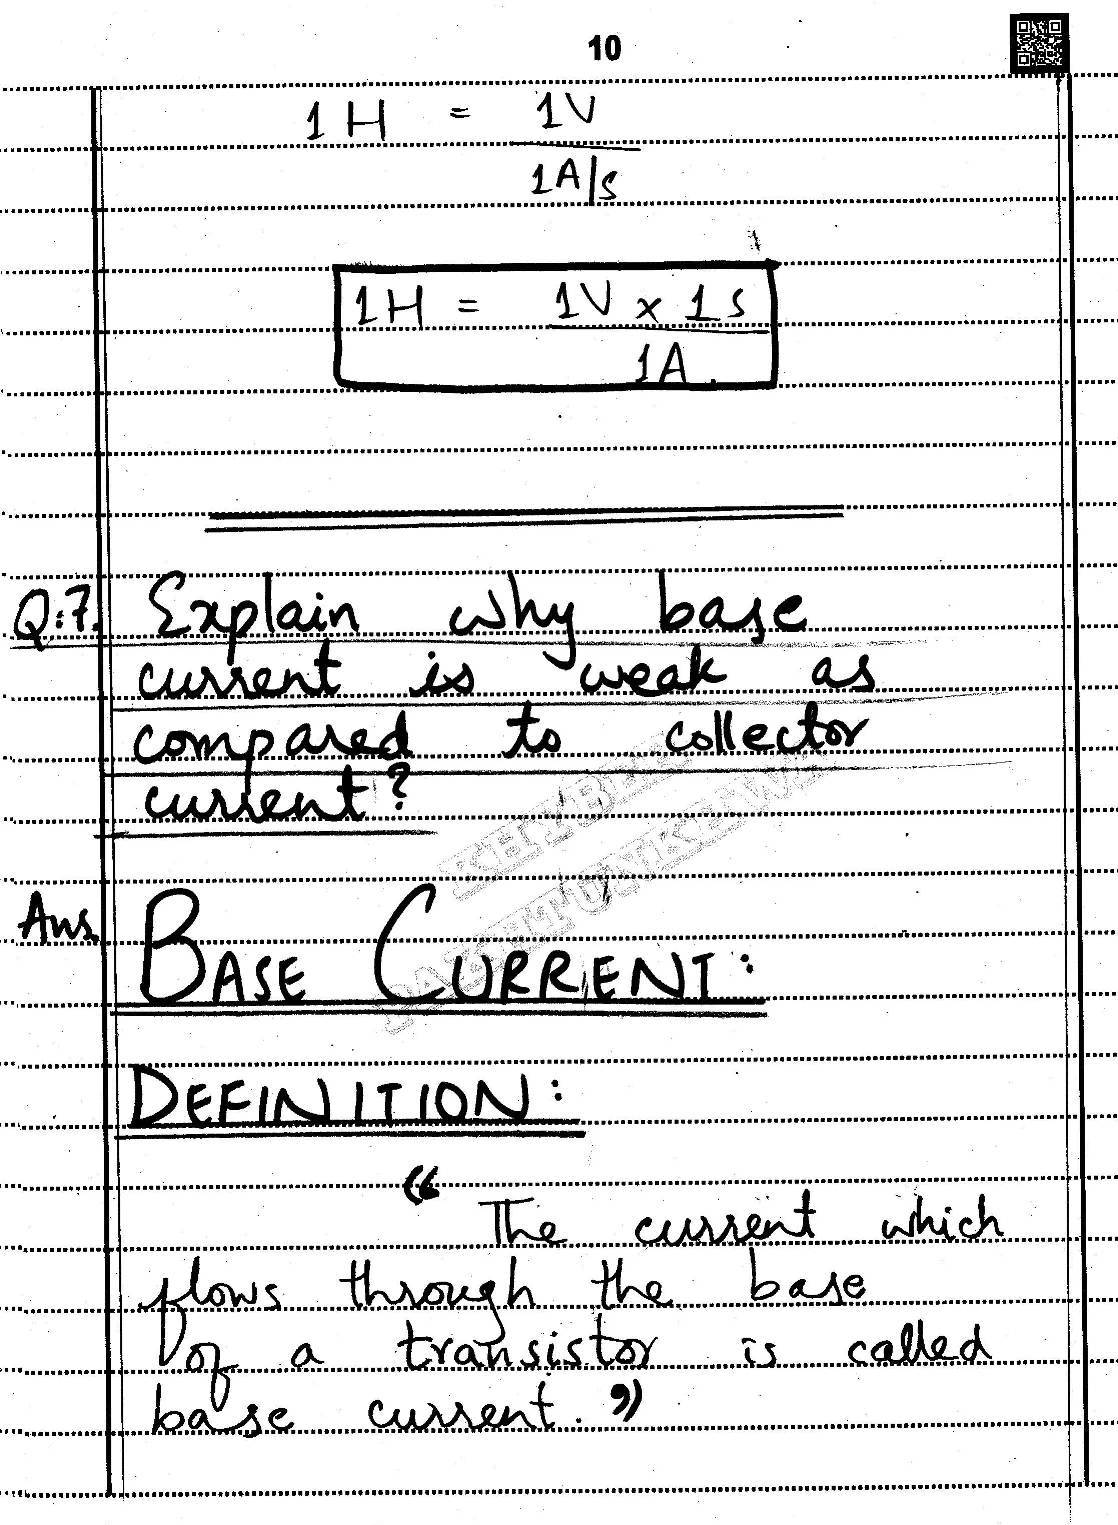 10
1H = 1V
1A/s
1H = 1V x 1s
1A.
Q:7. Explain why base
current is weak as
compared to collector
current?
KHYBER
PAKHTUNKHWA
Ans. BASE CURRENT:
DEFINITION:
“ The current which
flows through the base
of a transistor is called
base current. ”